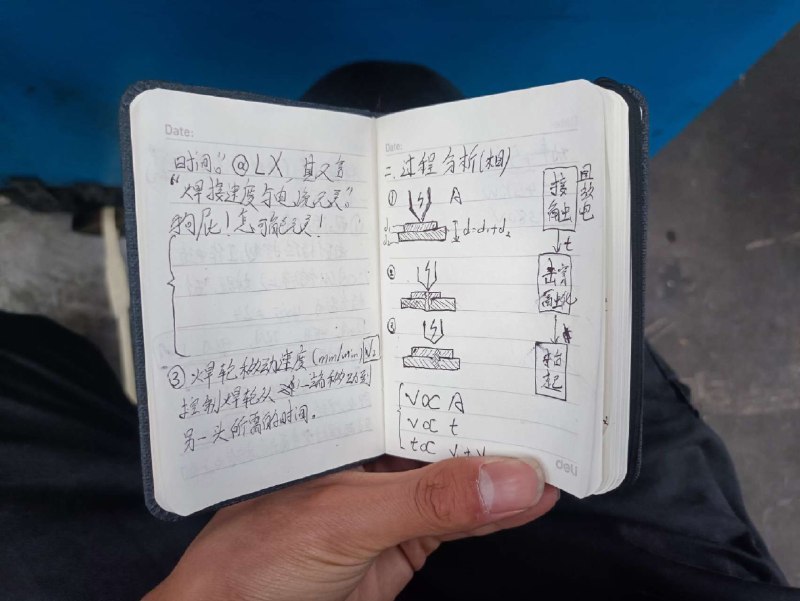 Date:
时间。" @LX, 其又言
"焊接速度与电流无关。"
狗屁！怎可能无关！
③ 焊轮移动速度 (mm/min) V₂
控制焊轮从一端移动到
另一头所需的时间。
Date:
二、过程分析(相)
① A
d₁
d₂
d=d₁+d₂
②
③
接触
回放电
t
击穿
抬起
V∝A
V∝t
t∝
deli